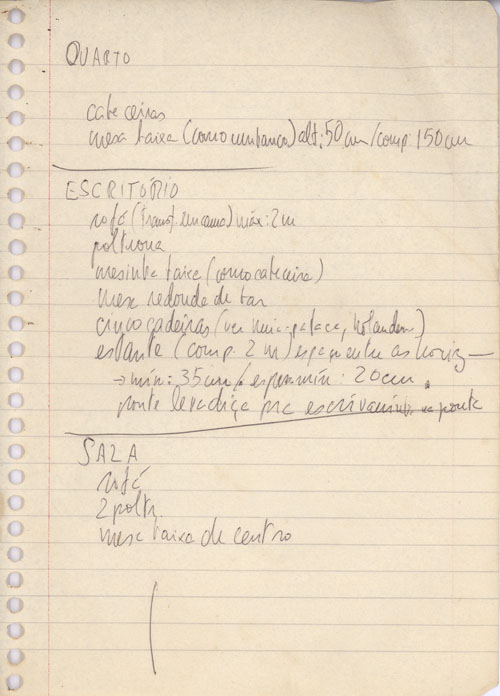 QUARTO
cabeceiras
mesa baixa (como um banco) alt: 50 cm / comp. 150 cm
ESCRITÓRIO
sofá (transf. em cama) máx: 2 m
poltrona
mesinha baixa (como cabeceira)
mesa redonda de bar
cinco cadeiras (ver
estante (comp. 2 m) espaç entre as horiz —
→ mín: 35 cm / espess mín: 20 cm.
ponte levadiça pra escrivaninha na ponta
SALA
sofá
2 poltr.
mesa baixa de centro